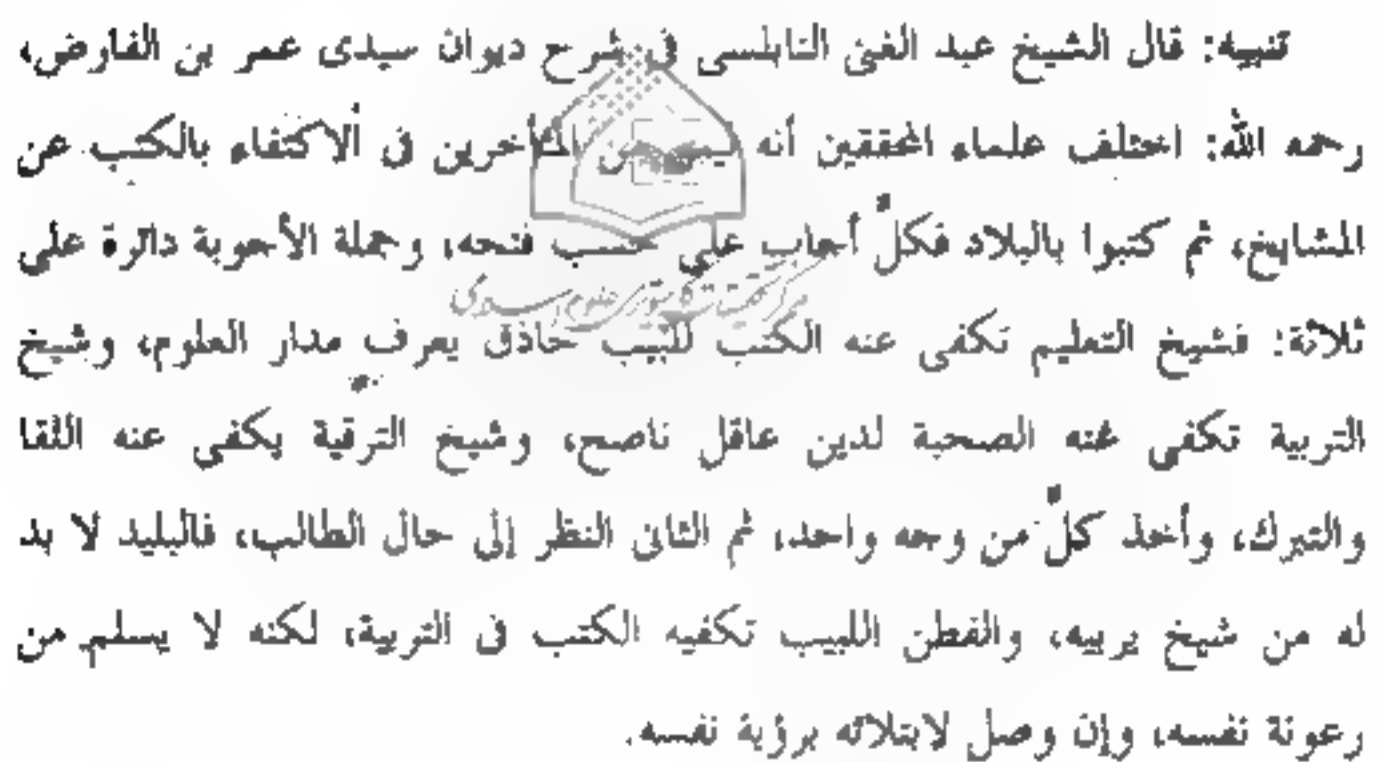 تنبيه: قال الشيخ عبد الغنى النابلسى فى شرح ديوان سيدى عمر بن الفارض،
رحمه الله: اختلف علماء المحققين أنه من المتأخرين فى ألاكتفاء بالكتب عن
المشايخ، ثم كتبوا بالبلاد فكلٌ أجاب على حسب فتحه، وجملة الأجوبة دائرة على
ثلاثة: فشيخ التعليم تكفى عنه الكتب للبيب حاذق يعرف مدار العلوم، وشيخ
التربية تكفى عنه الصحبة لدين عاقل ناصح، وشيخ الترقية يكفى عنه اللقا
والتبرك، وأخذ كلٌ من وجه واحد، ثم الثانى النظر إلى حال الطالب، فالبليد لا بد
له من شيخ يربيه، والفطن اللبيب تكفيه الكتب فى التربية، لكنه لا يسلم من
رعونة نفسه، وإن وصل لابتلائه برؤية نفسه.